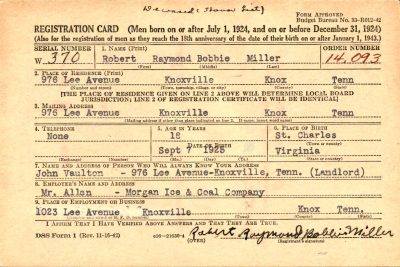 Deceased (Honor List)
FORM APPROVED
Budget Bureau No. 33-R012-42
REGISTRATION CARD (Men born on or after July 1, 1924, and on or before December 31, 1924)
(Also for the registration of men as they reach the 18th anniversary of the date of their birth on or after January 1, 1943.)
SERIAL NUMBER 1. NAME (Print) ORDER NUMBER
W 370 Robert Raymond Bobbie Miller 14,093
(First) (Middle) (Last)
2. PLACE OF RESIDENCE (Print)
976 Lee Avenue Knoxville Knox Tenn
(Number and street) (Town, township, village, or city) (County) (State)
[THE PLACE OF RESIDENCE GIVEN ON LINE 2 ABOVE WILL DETERMINE LOCAL BOARD
JURISDICTION; LINE 2 OF REGISTRATION CERTIFICATE WILL BE IDENTICAL]
3. MAILING ADDRESS
976 Lee Avenue Knoxville Knox Tenn
[Mailing address if other than place indicated on line 2. If same, insert word same]
4. TELEPHONE 5. AGE IN YEARS 6. PLACE OF BIRTH
None 18 St. Charles
DATE OF BIRTH
Sept 7 1925 Virginia
(Exchange) (Number) (Mo.) (Day) (Yr.) (State or country)
7. NAME AND ADDRESS OF PERSON WHO WILL ALWAYS KNOW YOUR ADDRESS
John Vaulton - 976 Lee Avenue-Knoxville, Tenn. (Landlord)
8. EMPLOYER'S NAME AND ADDRESS
Mr. Allen - Morgan Ice & Coal Company
9. PLACE OF EMPLOYMENT OR BUSINESS
1023 Lee Avenue Knoxville Knox Tenn.
(Number and street or R. F. D. number) (Town) (County) (State)
I AFFIRM THAT I HAVE VERIFIED ABOVE ANSWERS AND THAT THEY ARE TRUE.
DSS Form 1 (Rev. 11-16-42) (OVER) Robert Raymond Bobbie Miller
(Registrant's signature)